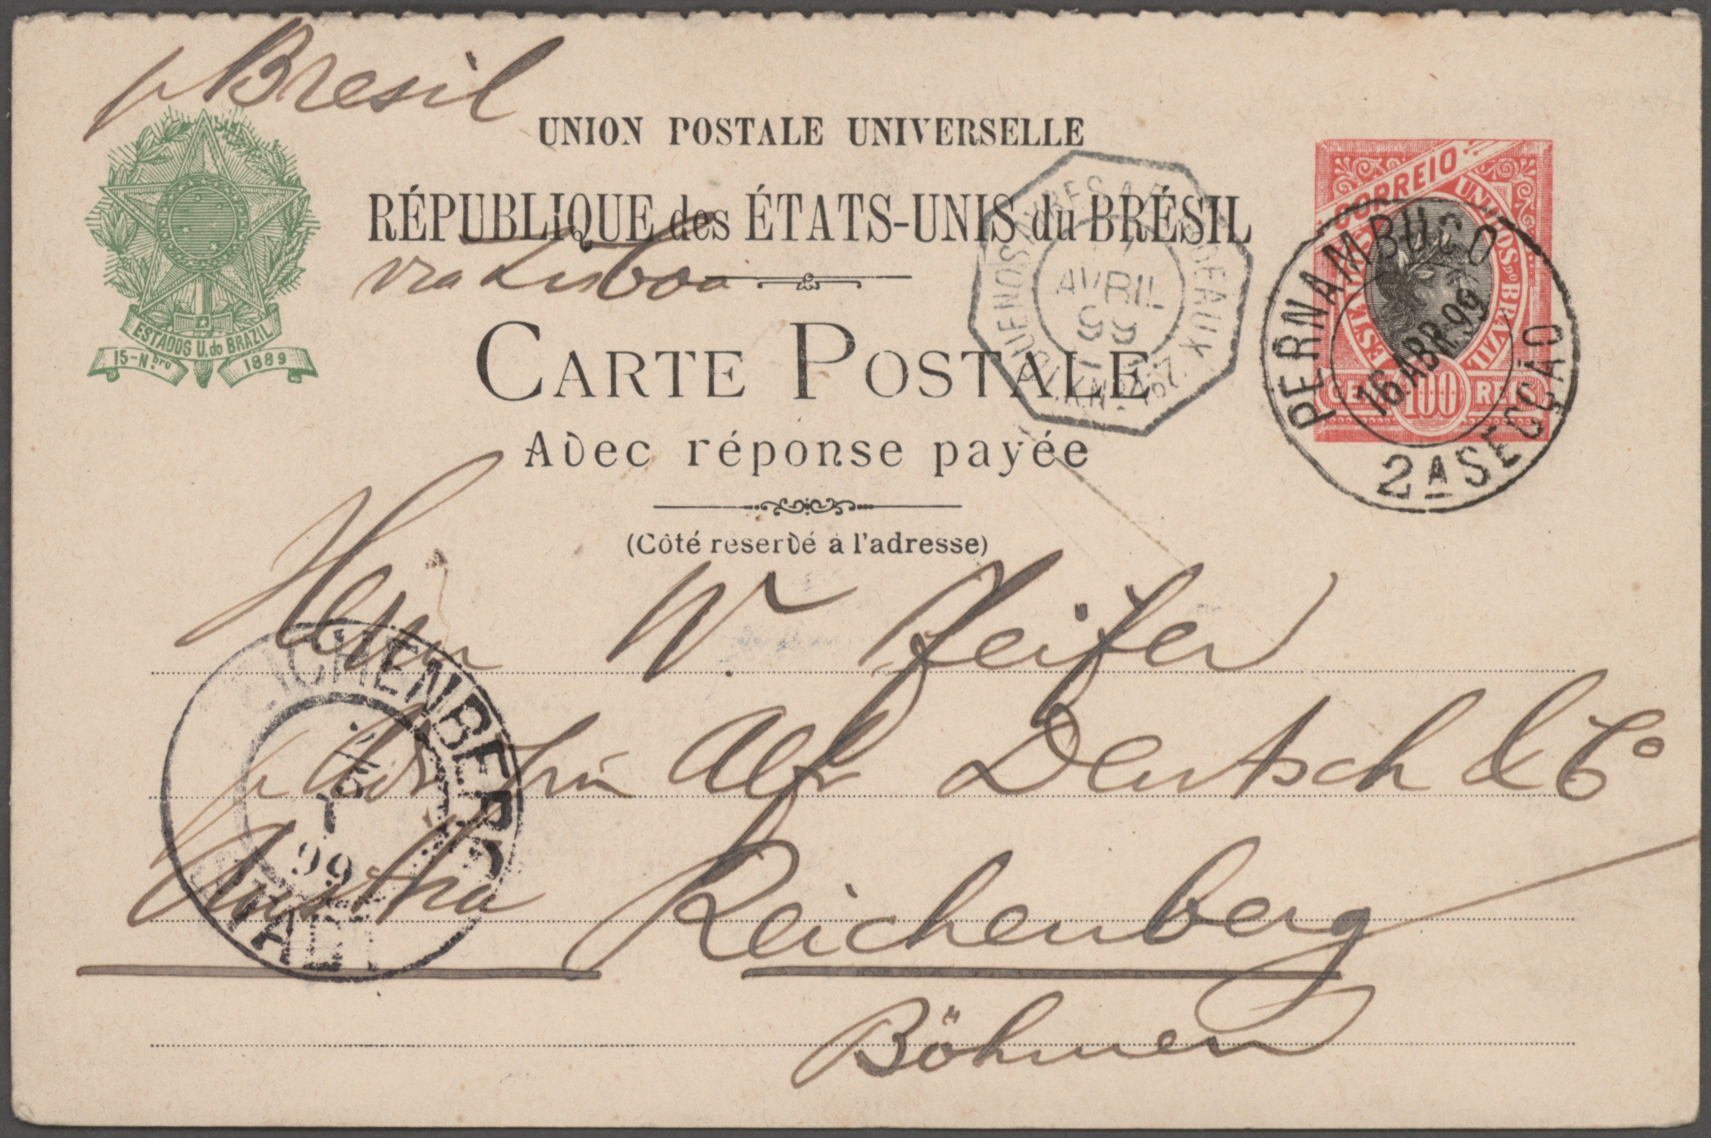 p Bresil
UNION POSTALE UNIVERSELLE
RÉPUBLIQUE des ÉTATS-UNIS du BRÉSIL
via Lisboa
CARTE POSTALE
Avec réponse payée
(Côté reservé á l'adresse)
ESTADOS U. do BRAZIL
15-N.bro 1889
BUENOS AYRES A BORDEAUX
AVRIL
99
CORREIO
ESTADOS UNIDOS DO BRAZIL
CEM 100 REIS
PERNAMBUCO
16 ABR 99
2A SECÇÃO
Herrn W. Feifer
Adr. Alf. Deutsch & Co
Austria Reichenberg
Böhmen
REICHENBERG
99
STADT